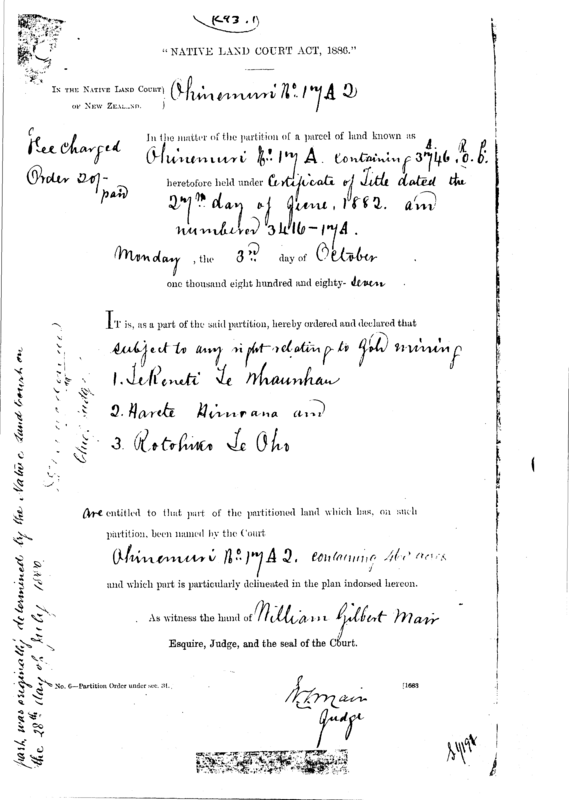 (K93.1)
"NATIVE LAND COURT ACT, 1886."
IN THE NATIVE LAND COURT
OF NEW ZEALAND.
Ohinemuri No. 17 A 2
Fee Charged
Order 20/-
paid
In the matter of the partition of a parcel of land known as
Ohinemuri No. 17 A. containing
heretofore held under Certificate of Title dated the
27th day of June, 1882. and
numbered 3416-17A.
Monday, the 3rd day of October
one thousand eight hundred and eighty-seven.
IT is, as a part of the said partition, hereby ordered and declared that
subject to any right relating to Gold mining
1. Te Reneti Te Whaunhau
2. Harete and
3. Rotohiko Te Oho
are entitled to that part of the partitioned land which has, on such
partition, been named by the Court
Ohinemuri No. 17 A 2. containing acres
and which part is particularly delineated in the plan indorsed hereon.
As witness the hand of William Gilbert Mair
Esquire, Judge, and the seal of the Court.
No. 6—Partition Order under sec. 31.
[1683
W.G. Mair
Judge
part, was originally determined by the Native Land Court on
the 28th day of July 1880
Chief Judge